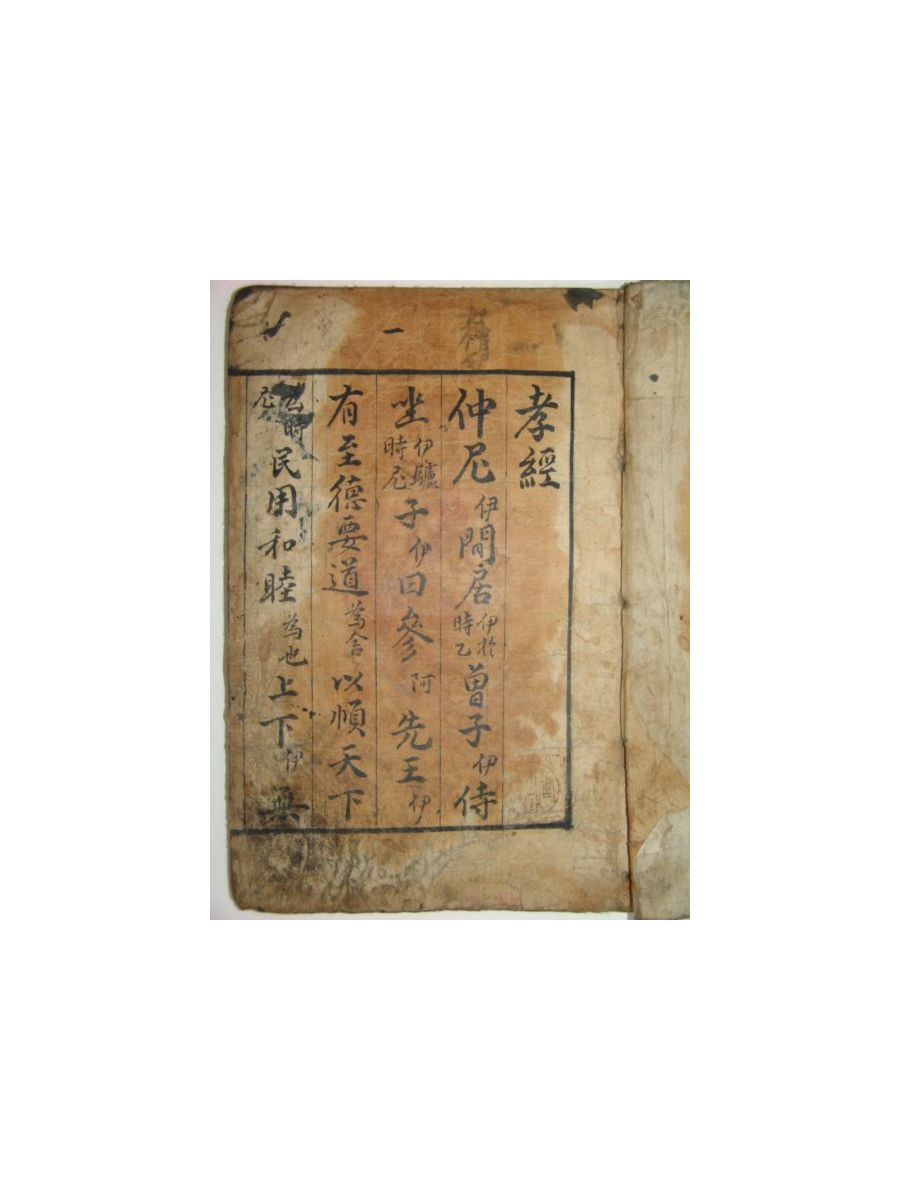 孝經
仲尼伊閒居伊於時乙曾子伊侍
坐伊驢時尼子伊曰參阿先王伊
有至德要道為舍以順天下
時尼民用和睦為也上下伊無